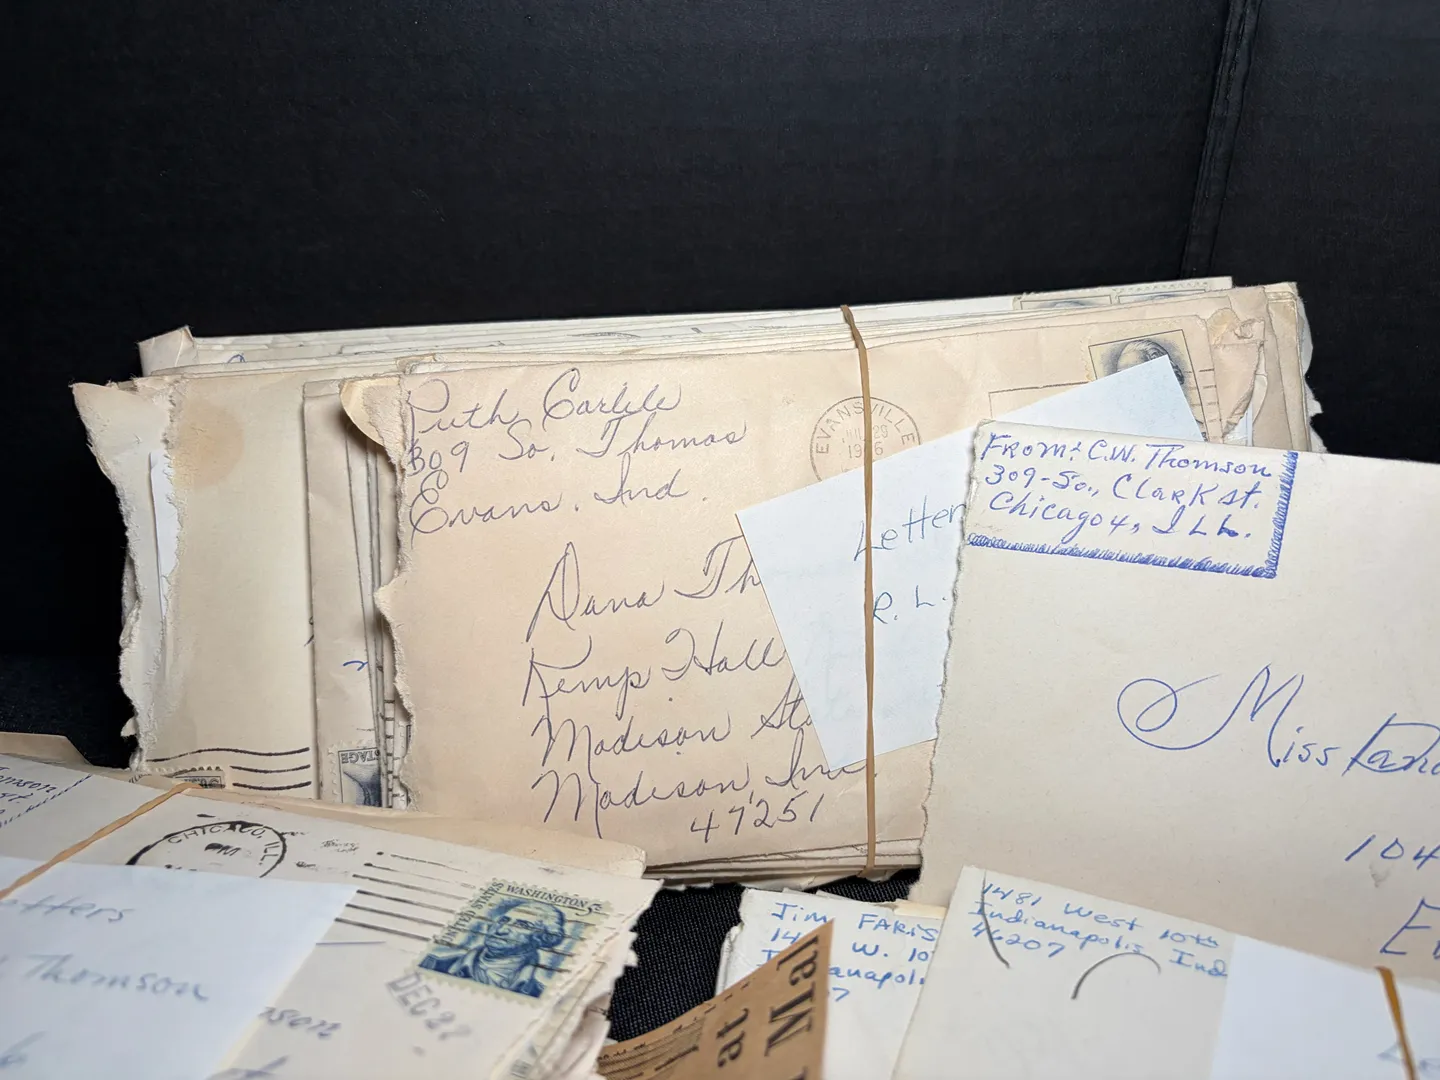 Ruth Carlile
309 So. Thomas
Evans. Ind.
EVANSVILLE
Dana Th
Kemp Hall
Madison St
Madison, Ind.
47251
Letter
R. L.
FROM: C.W. Thomson
309-So., Clark St.
Chicago 4, ILL.
Miss
104
E
CHICAGO, ILL.
PM
UNITED STATES
WASHINGTON 5c
DEC 22
Thomson
POSTAGE
Jim FARIS
14 W. 10
anapolis
7
at
Mai
1481 West 10th
Indianapolis Ind
46207